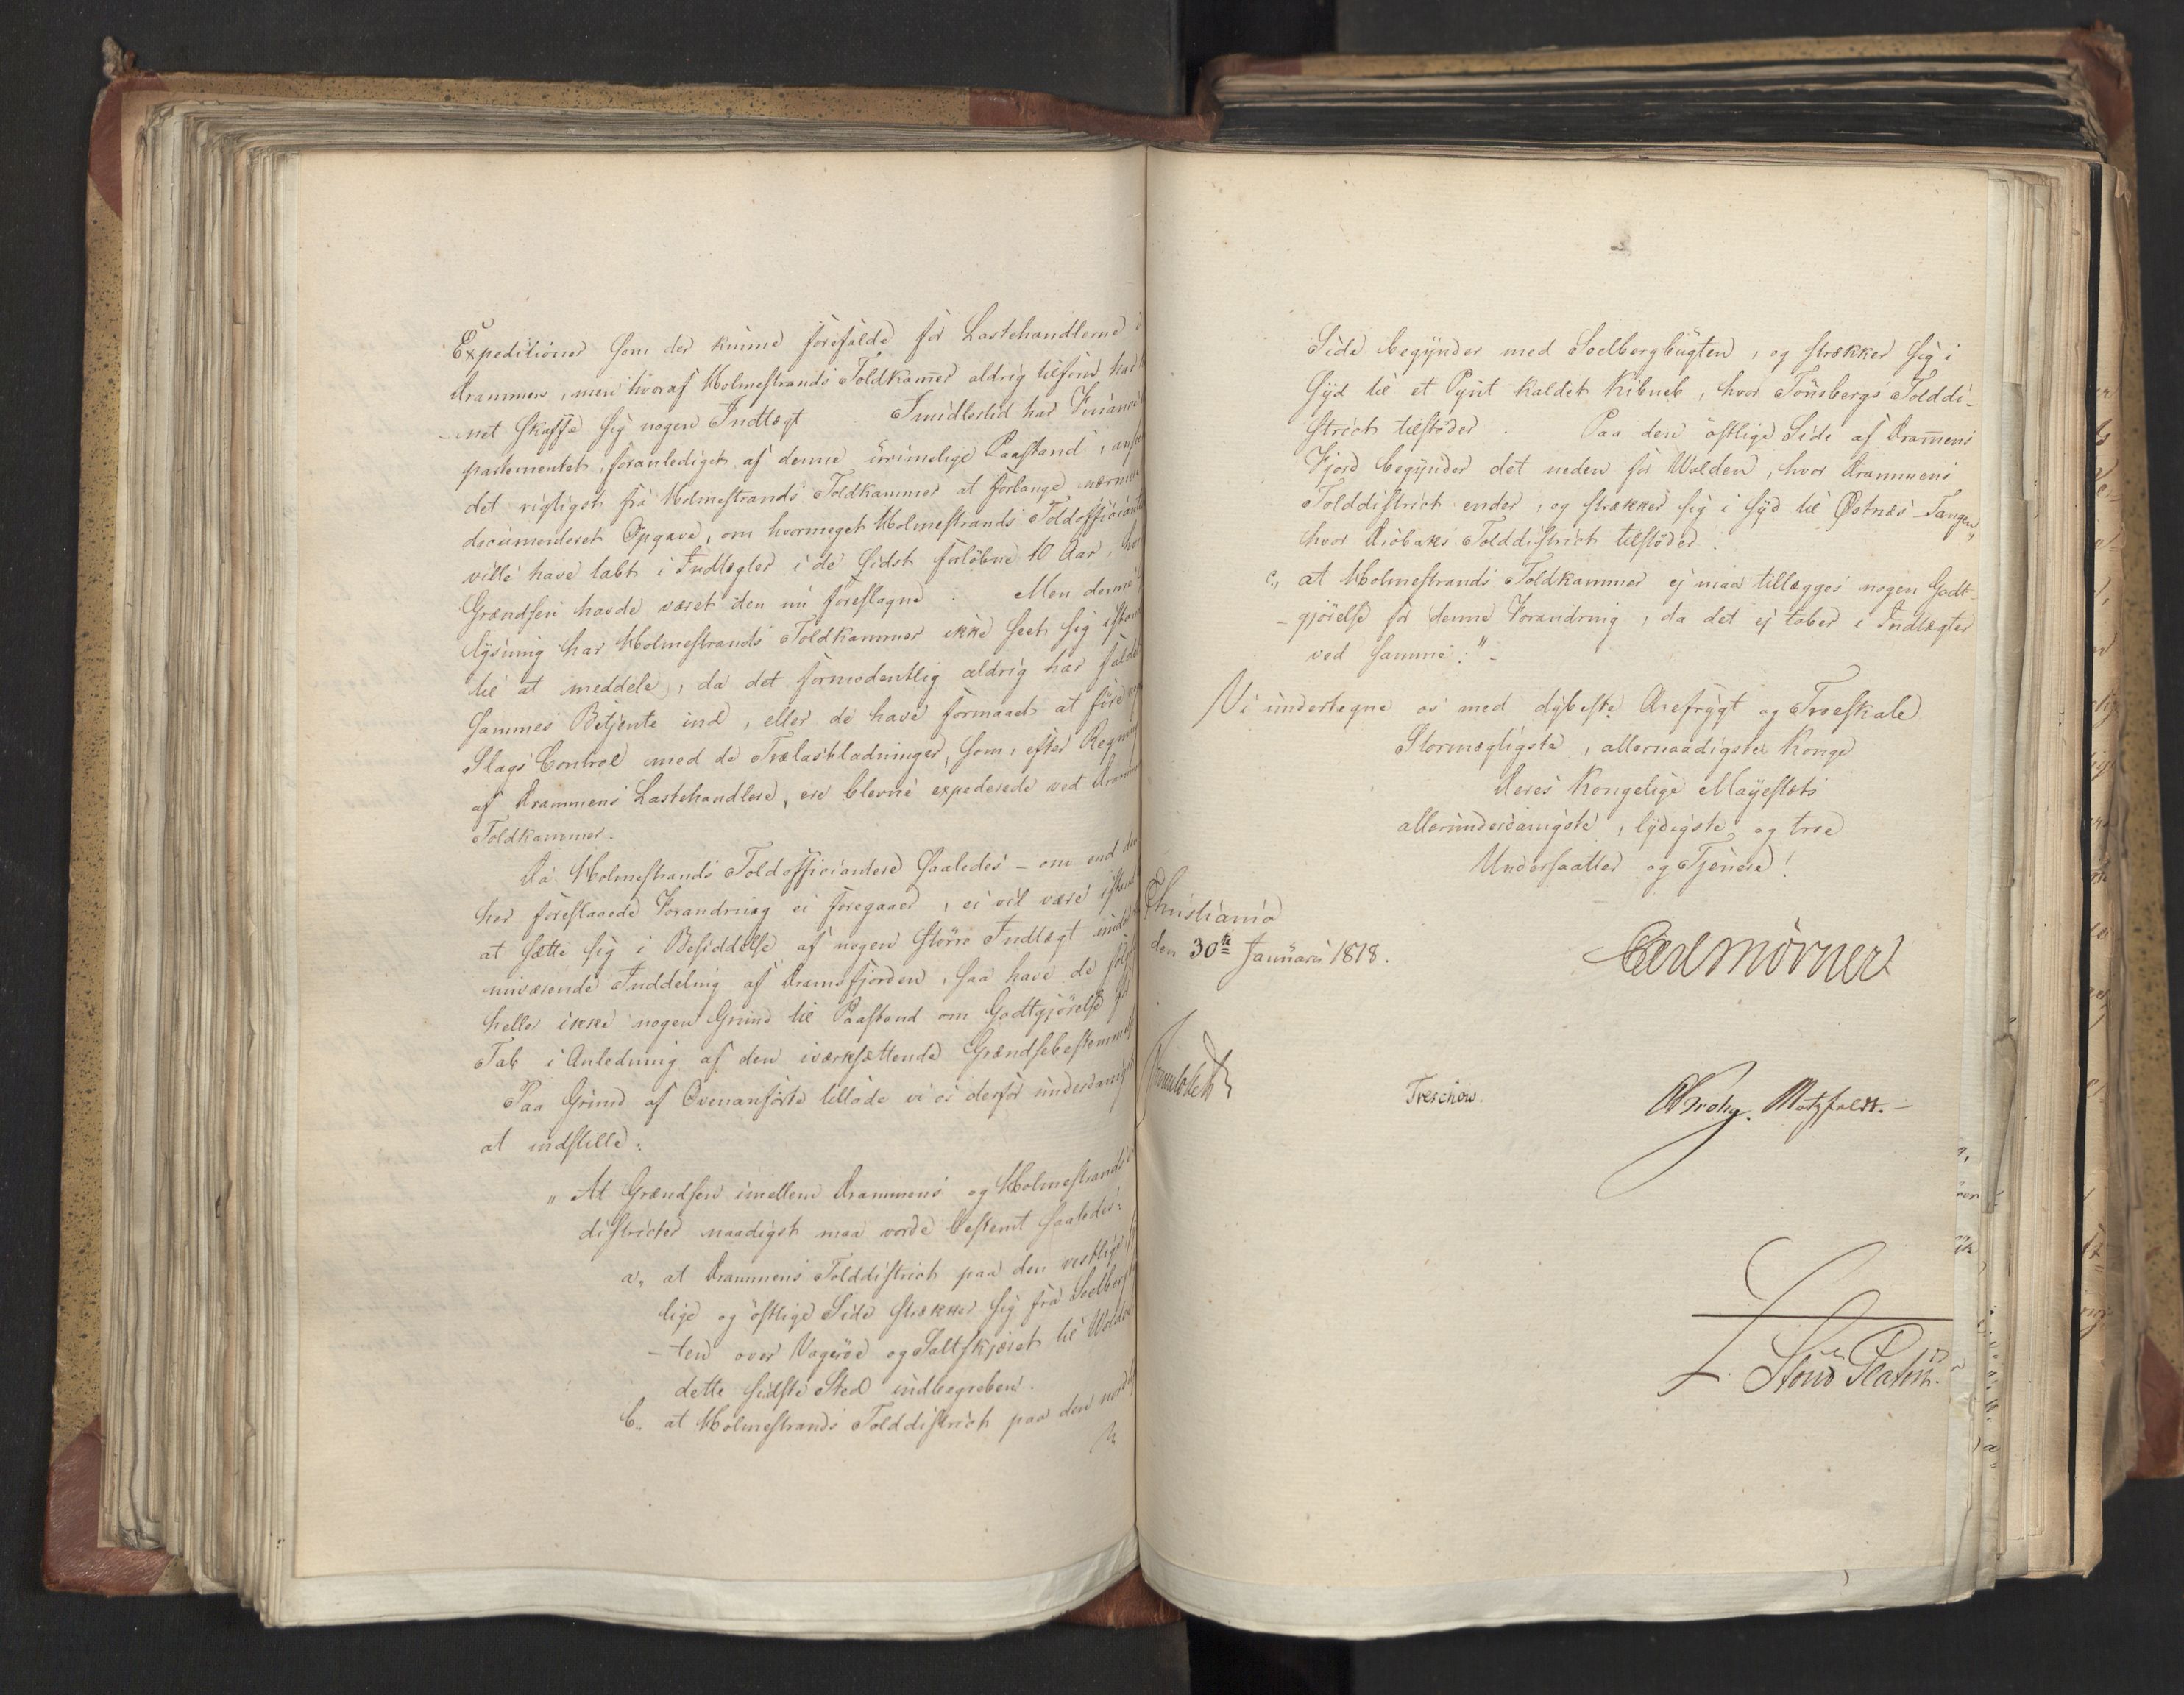 Expeditioner som der kunne forefalde for Lastehandlerne i
Drammen, men hvoraf Holmestrands Toldkam̅er aldrig tilforn har
-net skaffe sig nogen Indtægt. Imidlertid har Finance
partementet, foranlediget af denne urimelige Paastand, anse
det rigtigst fra Holmestrands Toldkammer at forlange nærme
documenteret Opgave, om hvormeget Holmestrands Toldofficiante
ville have tabt i Indtægter i de sidst forløbne 10 Aar, hvi
Grændsen havde været den nu foreslagne. Men denne
lysning har Holmestrands Toldkammer ikke seet sig istand
til at meddele, da det formodentlig aldrig har faldet
sammes Betjente ind, eller de have formaaet at føre no
Slags Control med de Trælastladninger, som, efter Regni
af Drammens Lastehandlere, ere blevne expederede ved Dramm
Toldkammer.
Da Holmestrands Toldofficianter saaledes – om end de
her foreslaaede Forandring ei foregaaer, ei vil være istand
at sætte sig i Besiddelse af nogen større Indtægt unde
nuværende Inddeling af Dramsfjorden, saa have de følg
heller ikke nogen Grund til Paastand om Godtgjørelse
Tab i Anledning af den iværksættende Grændsebestemmel
Paa Grund af Ovenanførte tillade vi os derfor underdanigst
at indstille:
„At Grændsen imellem Drammens og Holmestrands
districter naadigst maa vorde bestemt saaledes:
a, at Drammens Tolddistrict paa den vestlige
lige og østlige Side strækker sig fra Soelberg
-ten over Vagerøe og Saltskjæret til Wolden
dette sidste Sted indbegreben.
b, at Holmestrands Tolddistrict paa den
Side begynder med Soelbergbugten, og strækker sig i
Syd til et Pynt kaldet Ribneb, hvor Tønsbergs Tolddi-
strict tilstøder. Paa den østlige Side af Dram̅ens
Fjord begynder det neden for Wolden, hvor Drammens
Tolddistrict ender, og strækker sig i Syd til Østnæs-Tangen,
hvor Drøbaks Tolddistrict tilstøder.
c, at Holmestrands Toldkammer ej maa tillægges nogen Godt-
-gjørelse for denne Forandring, da det ej taber i Indtægter
ved samme."–
Vi undertegne os med dybeste Ærefrygt og Troeskab
Stormægtigste, allernaadigste Konge
Deres Kongelige Mayestæts
allerunderdanigste, lydigste og troe
Undersaatter og Tjenere!
Christiania
den 30te Januari 1818.
Carl Mörner
Treschow.
Krohg. Motzfeldt.–